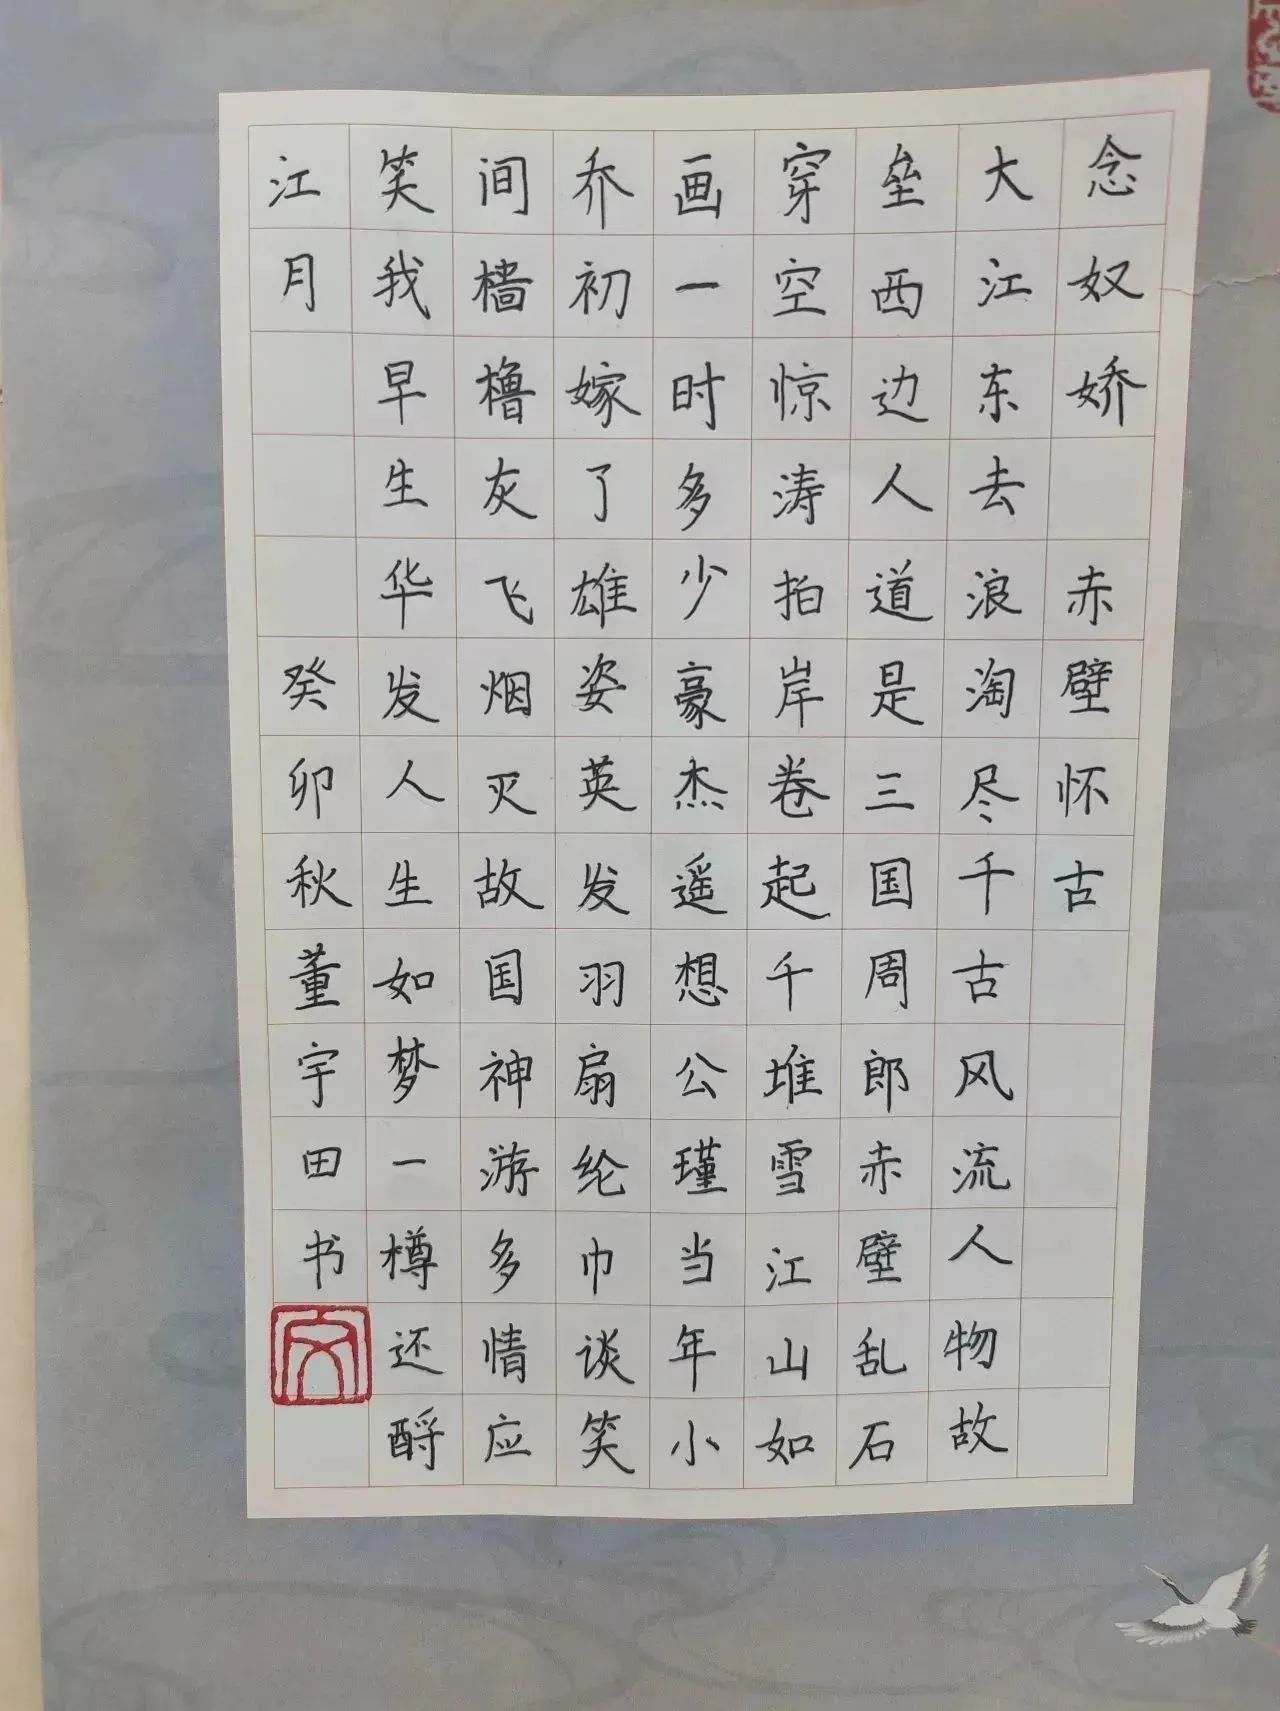 念奴娇 赤壁怀古
大江东去浪淘尽千古风流人物故
垒西边人道是三国周郎赤壁乱石
穿空惊涛拍岸卷起千堆雪江山如
画一时多少豪杰遥想公瑾当年小
乔初嫁了雄姿英发羽扇纶巾谈笑
间樯橹灰飞烟灭故国神游多情应
笑我早生华发人生如梦一樽还酹
江月 癸卯秋董宇田书